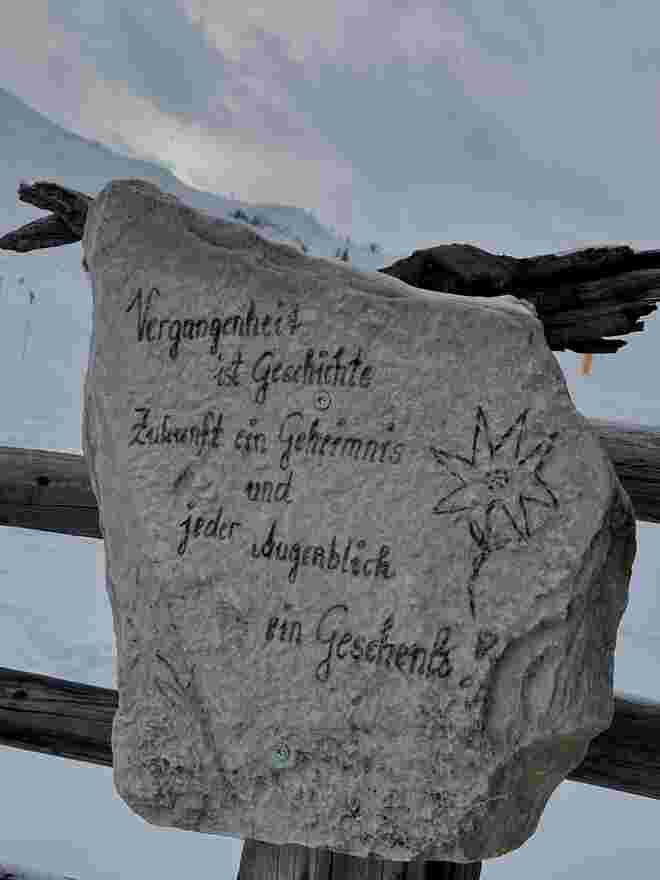 Vergangenheit
ist Geschichte
Zukunft ein Geheimnis
und
jeder Augenblick
ein Geschenk.